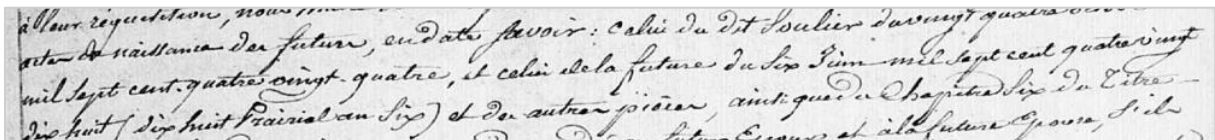 à leur réquisition, nous
actes de naissance des futurs, en date savoir : celui du dit Soulier du vingt quatre
mil sept cent quatre vingt-quatre, et celui de la future du six Juin mil sept cent quatre vingt
dix huit (dix huit Prairial an Six) et des autres pièces, ainsi que du Chapitre Six du Titre
future Epouse, s'ils